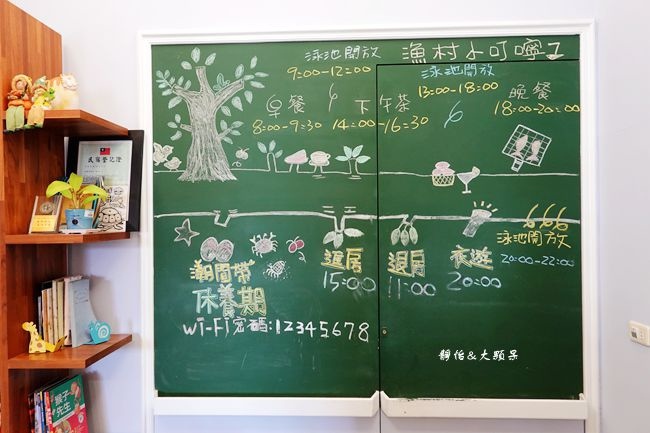 漁村小叮嚀
泳池開放
9:00-12:00
泳池開放
13:00-18:00
早餐
8:00-9:30
下午茶
14:00-16:30
晚餐
18:00-20:00
泳池開放
20:00-22:00
潮間帶
休養期
進房
15:00
退房
11:00
夜遊
20:00
Wi-Fi密碼:12345678
靜怡&大顆呆
民宿登記證
猴子
先生